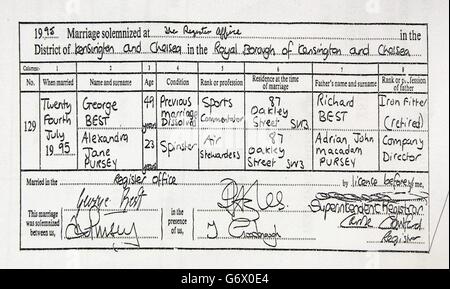 1995 Marriage solemnized at The Register Office in the
District of Kensington and Chelsea in the Royal Borough of Kensington and Chelsea
Columns: 1 2 3 4 5 6 7 8
No. When married Name and surname Age Condition Rank or profession Residence at the time of marriage Father's name and surname Rank or profession of father
129 Twenty Fourth July 1995
George BEST 49 years Previous marriage Dissolved Sports Commentator 87 Oakley Street SW3 Richard BEST Iron Fitter (retired)
Alexandra Jane PURSEY 23 years Spinster Air Stewardess 87 Oakley Street SW3 Adrian John Macadam PURSEY Company Director
Married in the Register Office by licence before me,
This marriage was solemnized between us,
George Best
in the presence of us,
Superintendent Registrar
Registrar
alamy
Image ID: G6X0E4
www.alamy.com